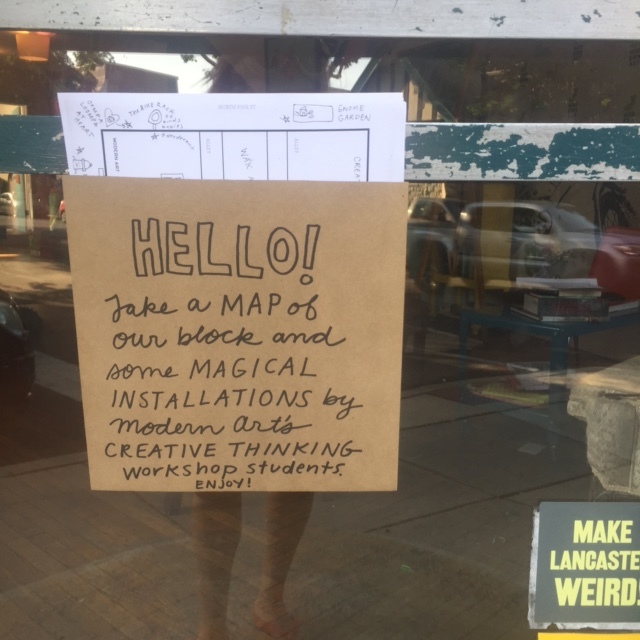 GNOME
GARDEN
HELLO!
Take a MAP of
our block and
some MAGICAL
INSTALLATIONS by
Modern Art's
CREATIVE THINKING
workshop students.
ENJOY!
MAKE
LANCASTE
WEIRD!